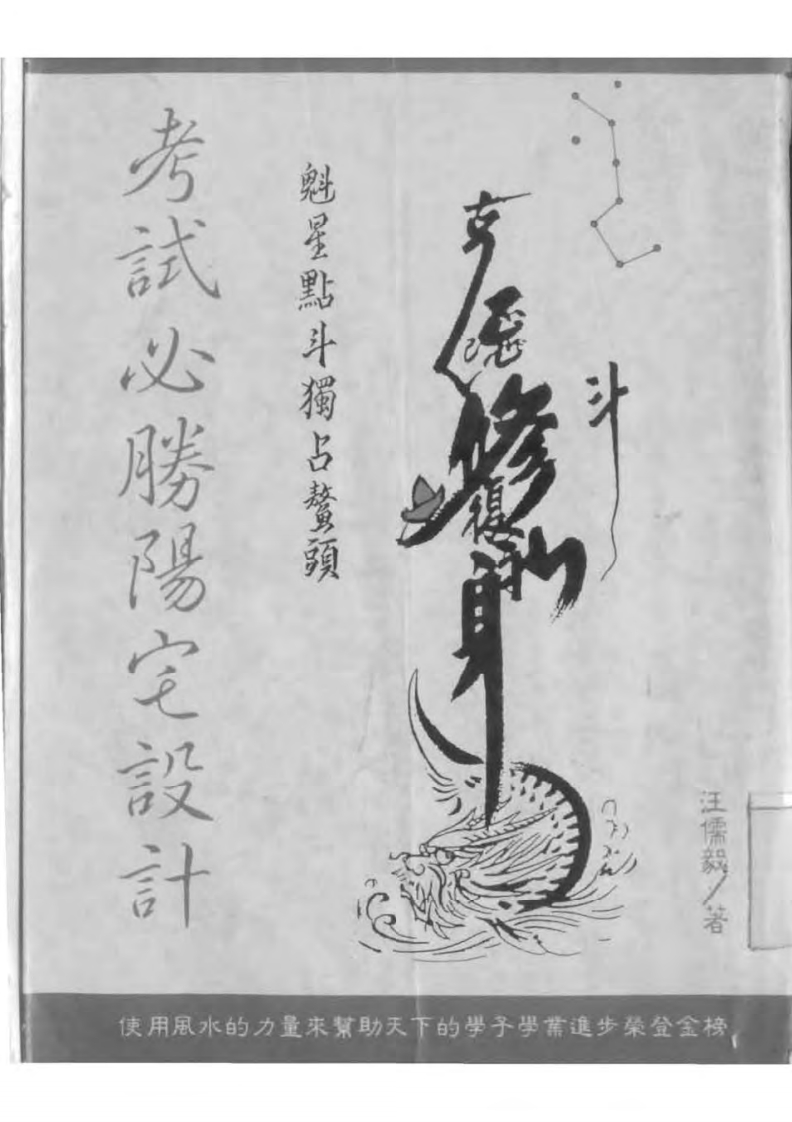 考試必勝陽宅設計
魁星點斗獨占鰲頭
克
正心
修
復
身
斗
汪儒毅/著
使用風水的力量來幫助天下的學子學業進步榮登金榜